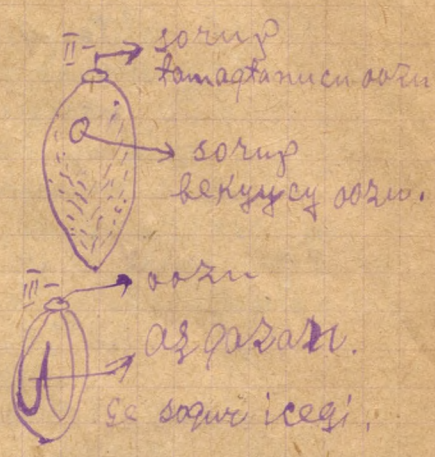 II- sorup
tamaqtanucu oozu
sorup
bekyycy oozu.
III- oozu
aşqazan.
çe soqur icegi.